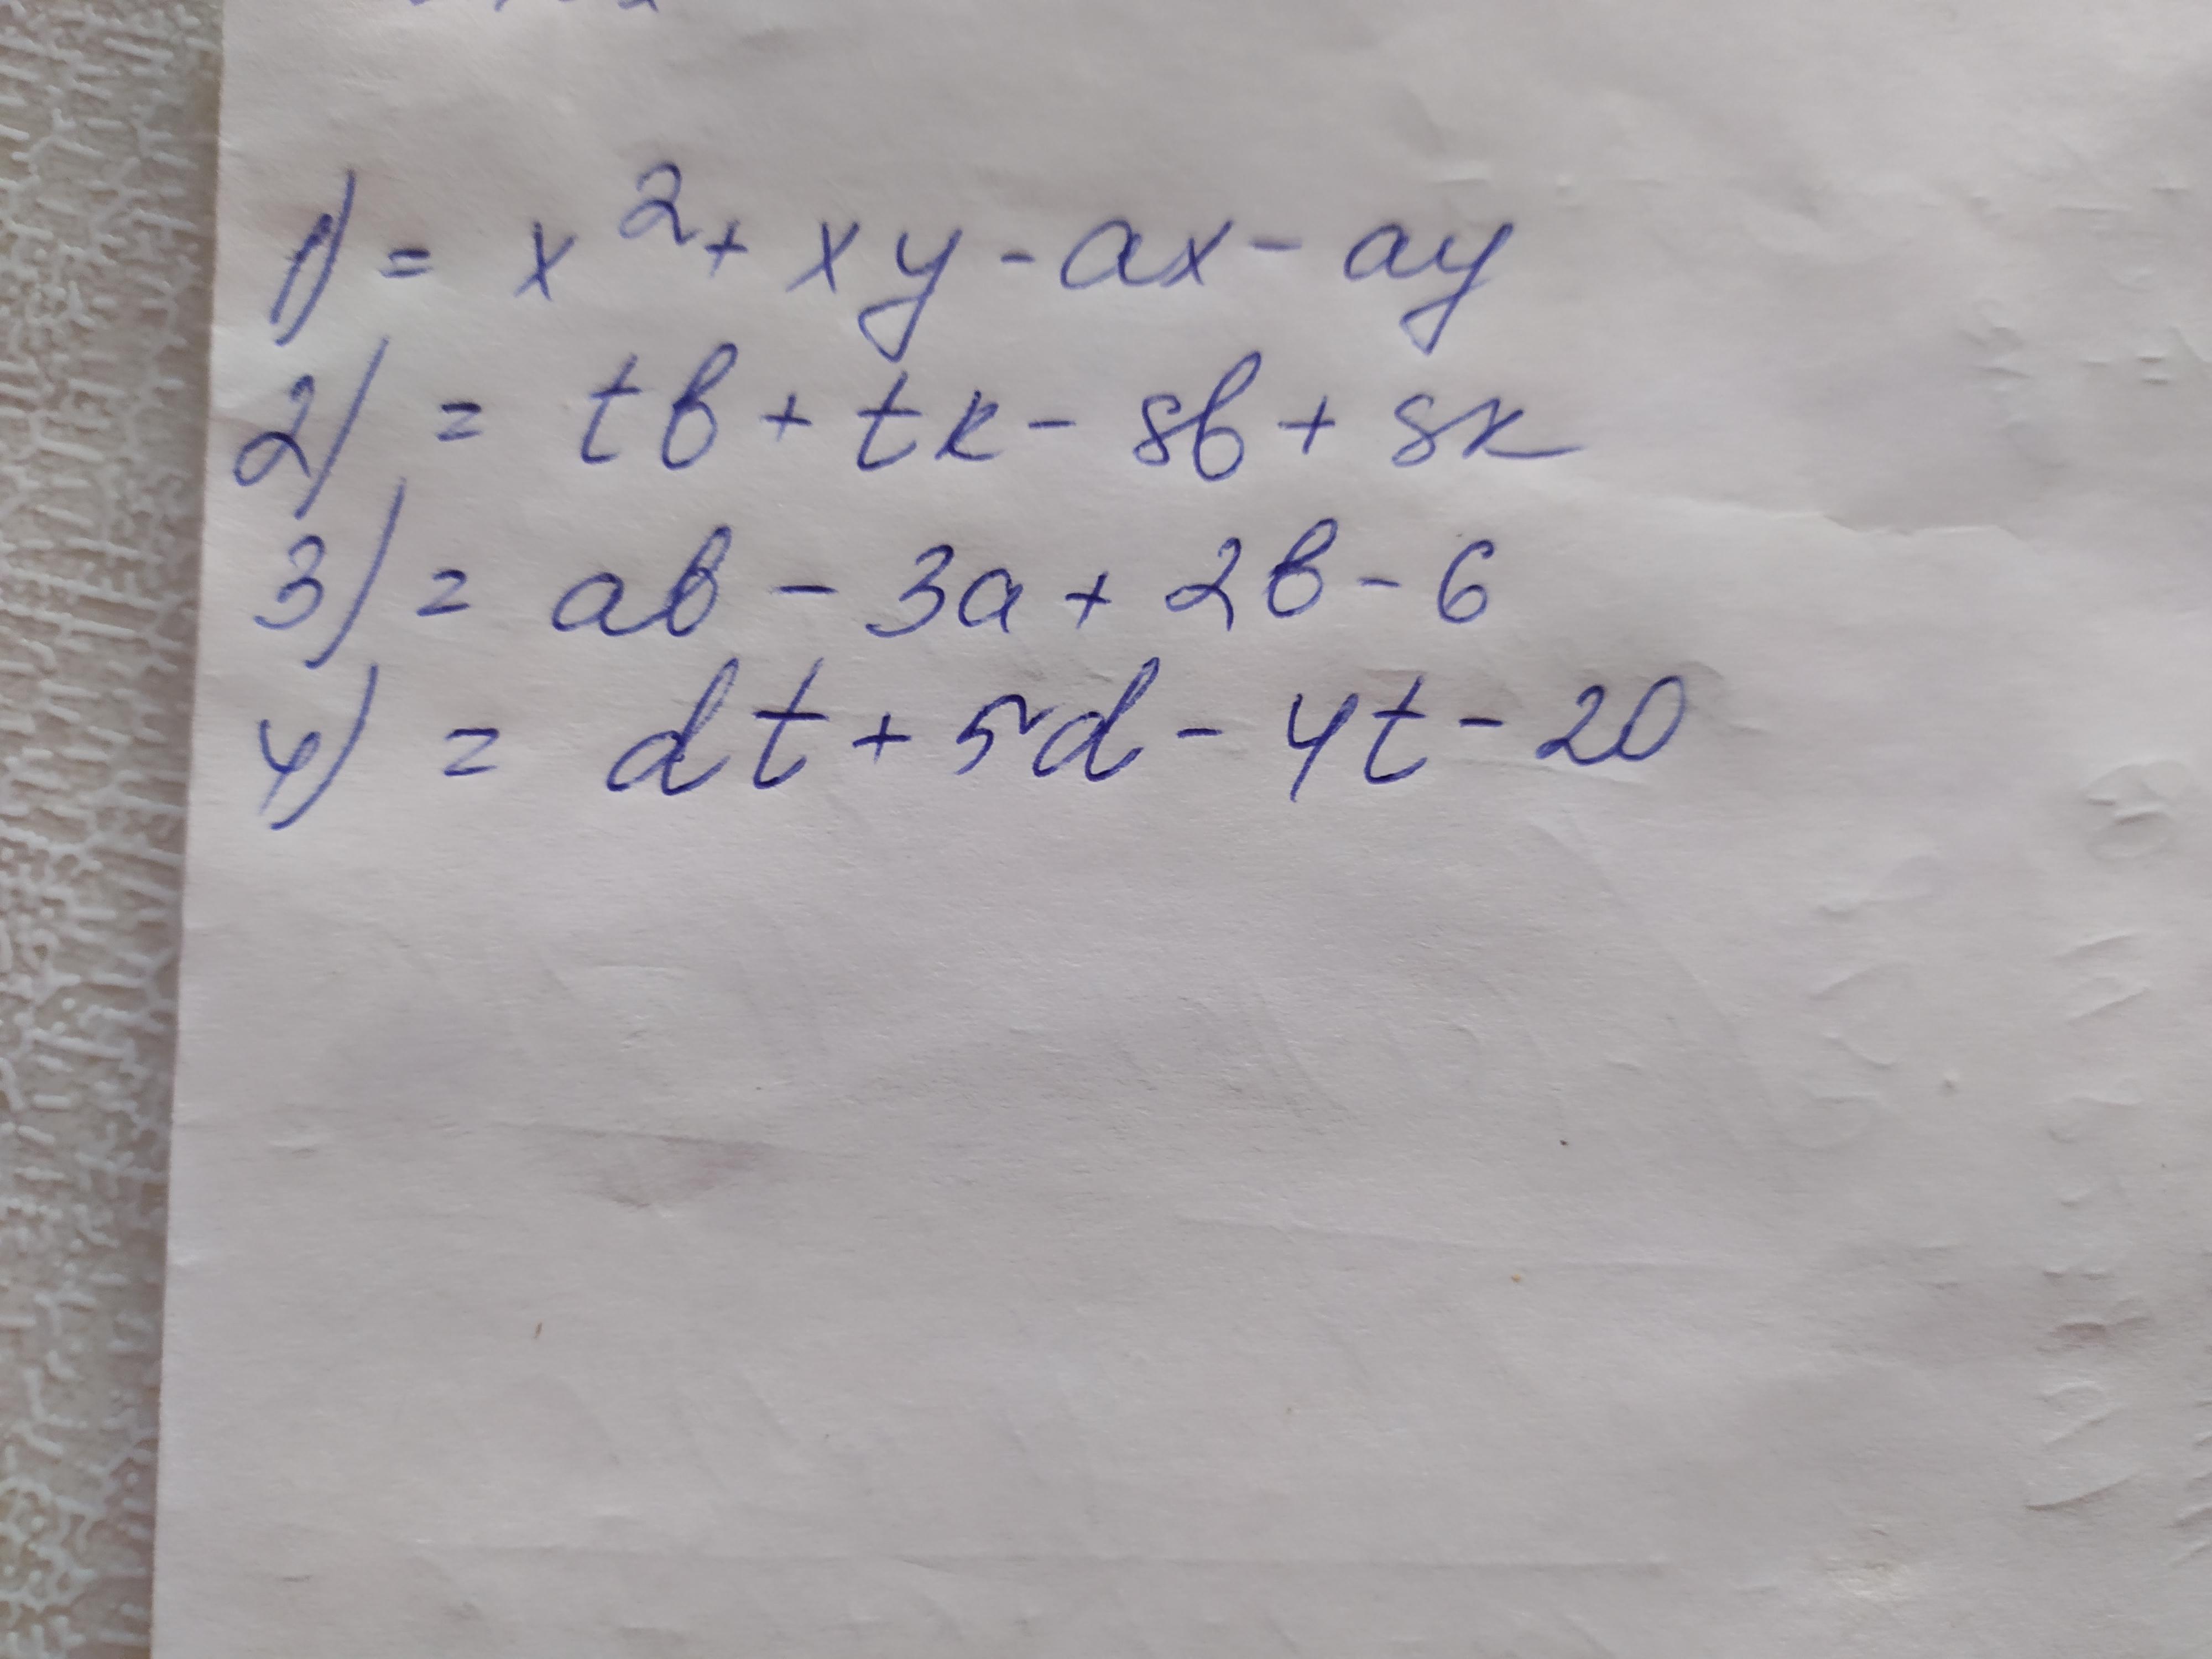 1) = x² + xy - ax - ay
2) = tb + tk - 8b + 8k
3) = ab - 3a + 2b - 6
4) = dt + 5d - 4t - 20